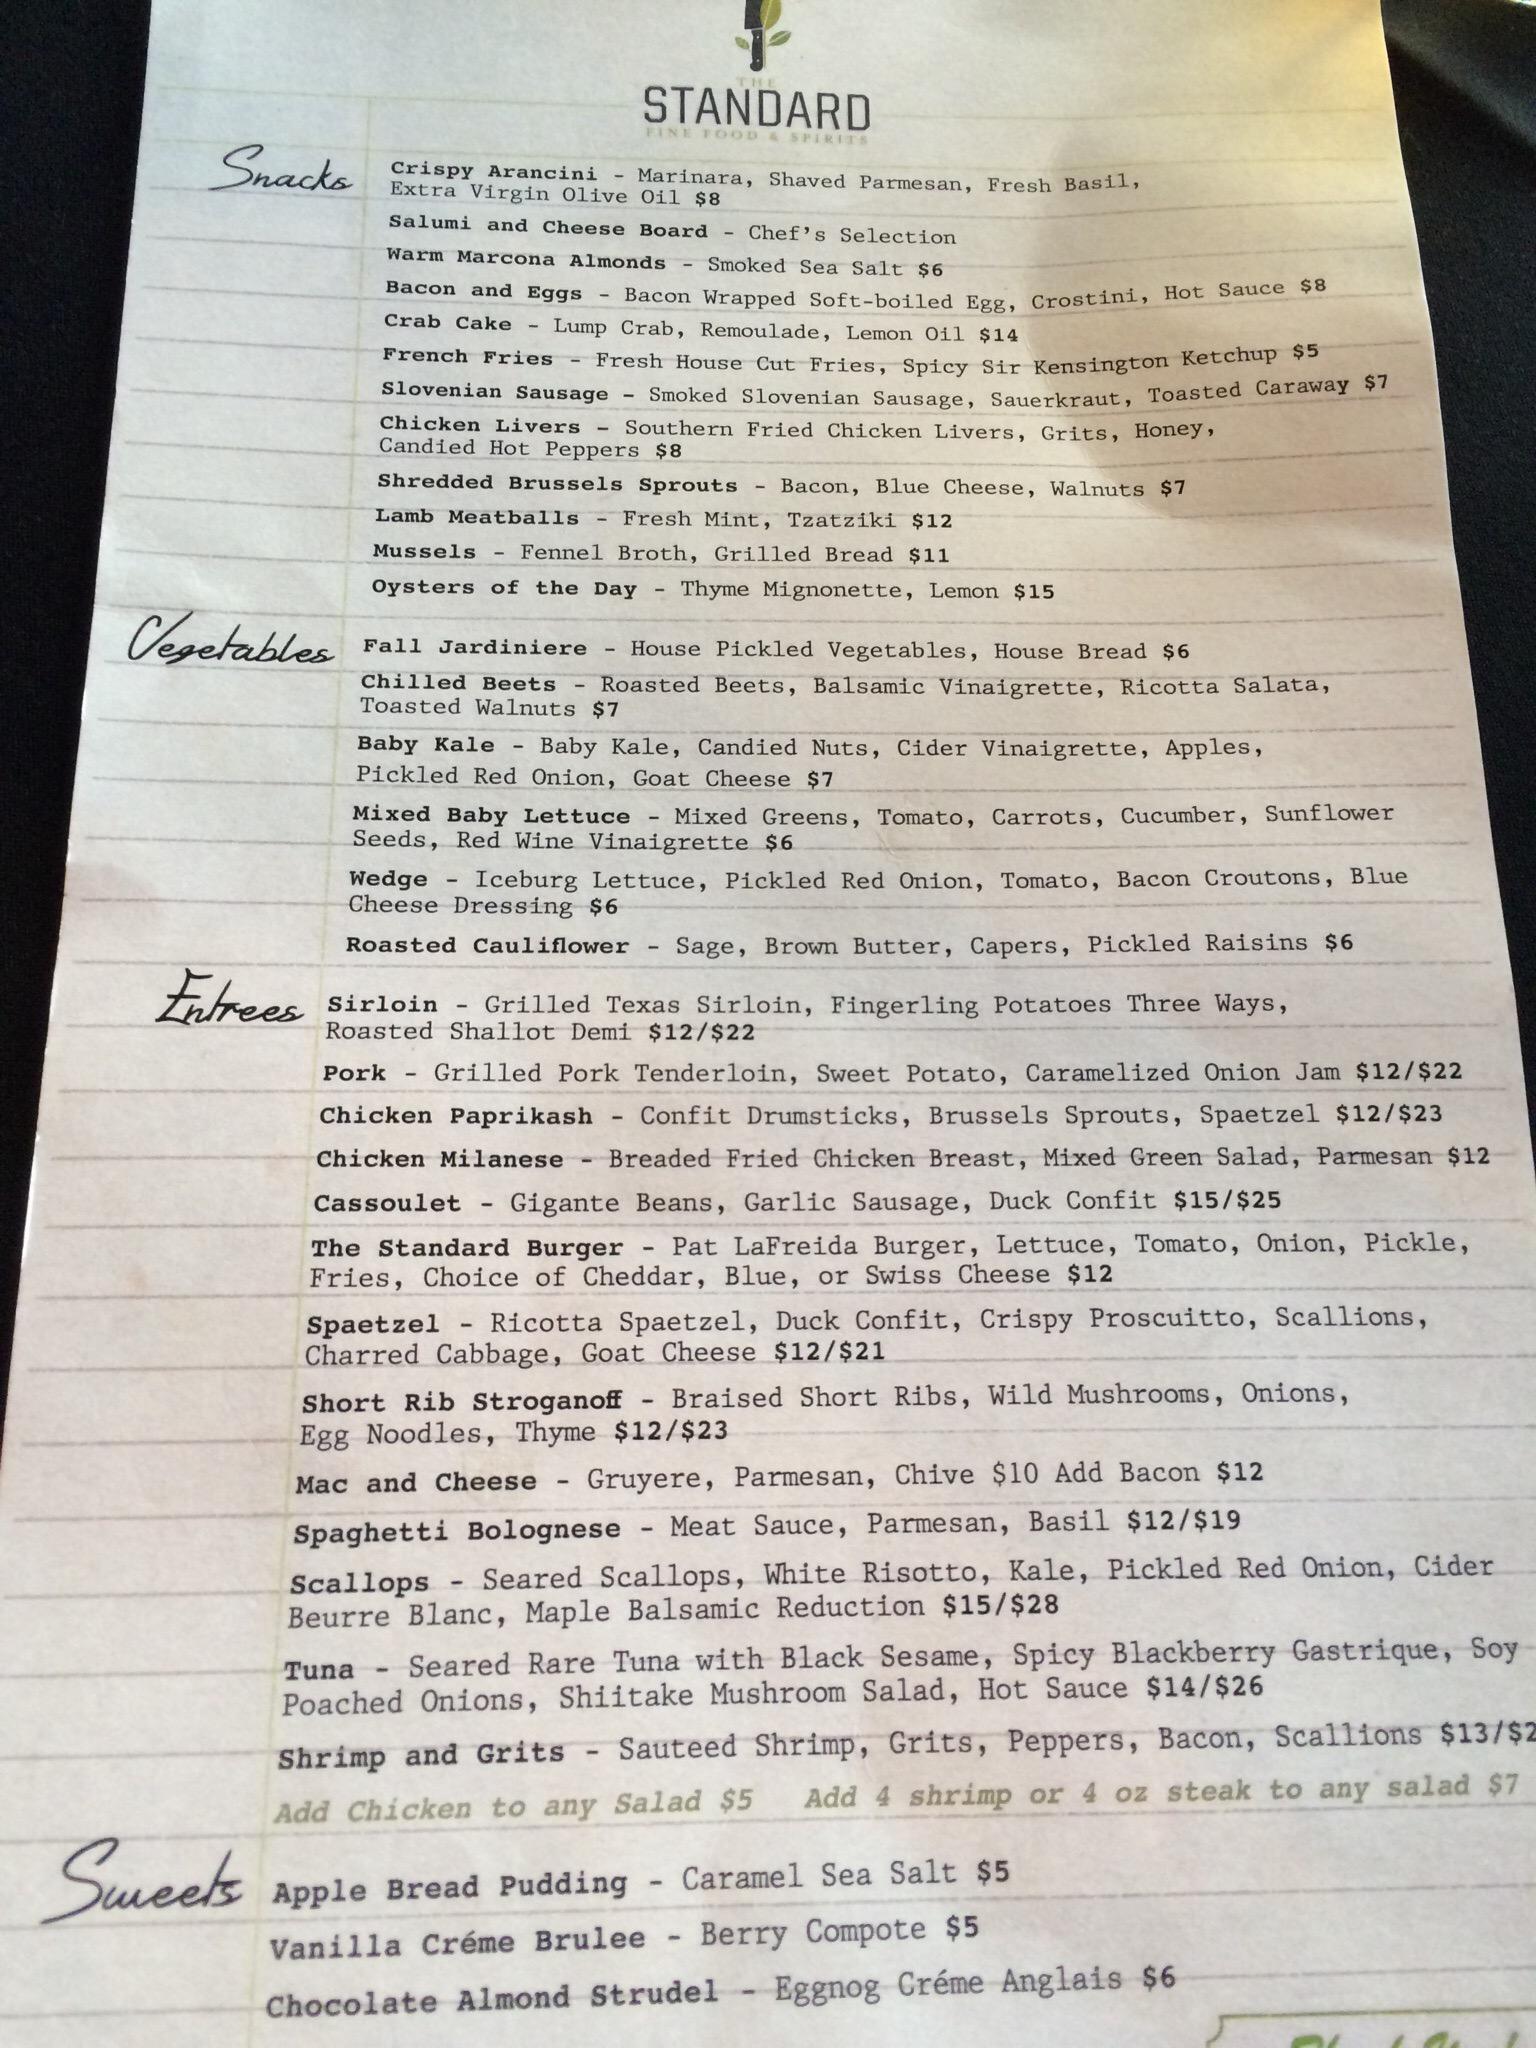 THE
STANDARD
FINE FOOD & SPIRITS
Snacks
Crispy Arancini - Marinara, Shaved Parmesan, Fresh Basil,
Extra Virgin Olive Oil $8
Salumi and Cheese Board - Chef's Selection
Warm Marcona Almonds - Smoked Sea Salt $6
Bacon and Eggs - Bacon Wrapped Soft-boiled Egg, Crostini, Hot Sauce $8
Crab Cake - Lump Crab, Remoulade, Lemon Oil $14
French Fries - Fresh House Cut Fries, Spicy Sir Kensington Ketchup $5
Slovenian Sausage - Smoked Slovenian Sausage, Sauerkraut, Toasted Caraway $7
Chicken Livers - Southern Fried Chicken Livers, Grits, Honey,
Candied Hot Peppers $8
Shredded Brussels Sprouts - Bacon, Blue Cheese, Walnuts $7
Lamb Meatballs - Fresh Mint, Tzatziki $12
Mussels - Fennel Broth, Grilled Bread $11
Oysters of the Day - Thyme Mignonette, Lemon $15
Vegetables
Fall Jardiniere - House Pickled Vegetables, House Bread $6
Chilled Beets - Roasted Beets, Balsamic Vinaigrette, Ricotta Salata,
Toasted Walnuts $7
Baby Kale - Baby Kale, Candied Nuts, Cider Vinaigrette, Apples,
Pickled Red Onion, Goat Cheese $7
Mixed Baby Lettuce - Mixed Greens, Tomato, Carrots, Cucumber, Sunflower
Seeds, Red Wine Vinaigrette $6
Wedge - Iceburg Lettuce, Pickled Red Onion, Tomato, Bacon Croutons, Blue
Cheese Dressing $6
Roasted Cauliflower - Sage, Brown Butter, Capers, Pickled Raisins $6
Entrees
Sirloin - Grilled Texas Sirloin, Fingerling Potatoes Three Ways,
Roasted Shallot Demi $12/$22
Pork - Grilled Pork Tenderloin, Sweet Potato, Caramelized Onion Jam $12/$22
Chicken Paprikash - Confit Drumsticks, Brussels Sprouts, Spaetzel $12/$23
Chicken Milanese - Breaded Fried Chicken Breast, Mixed Green Salad, Parmesan $12
Cassoulet - Gigante Beans, Garlic Sausage, Duck Confit $15/$25
The Standard Burger - Pat LaFreida Burger, Lettuce, Tomato, Onion, Pickle,
Fries, Choice of Cheddar, Blue, or Swiss Cheese $12
Spaetzel - Ricotta Spaetzel, Duck Confit, Crispy Proscuitto, Scallions,
Charred Cabbage, Goat Cheese $12/$21
Short Rib Stroganoff - Braised Short Ribs, Wild Mushrooms, Onions,
Egg Noodles, Thyme $12/$23
Mac and Cheese - Gruyere, Parmesan, Chive $10 Add Bacon $12
Spaghetti Bolognese - Meat Sauce, Parmesan, Basil $12/$19
Scallops - Seared Scallops, White Risotto, Kale, Pickled Red Onion, Cider
Beurre Blanc, Maple Balsamic Reduction $15/$28
Tuna - Seared Rare Tuna with Black Sesame, Spicy Blackberry Gastrique, Soy
Poached Onions, Shiitake Mushroom Salad, Hot Sauce $14/$26
Shrimp and Grits - Sauteed Shrimp, Grits, Peppers, Bacon, Scallions $13/$2
Add Chicken to any Salad $5 Add 4 shrimp or 4 oz steak to any salad $7
Sweets
Apple Bread Pudding - Caramel Sea Salt $5
Vanilla Créme Brulee - Berry Compote $5
Chocolate Almond Strudel - Eggnog Créme Anglais $6